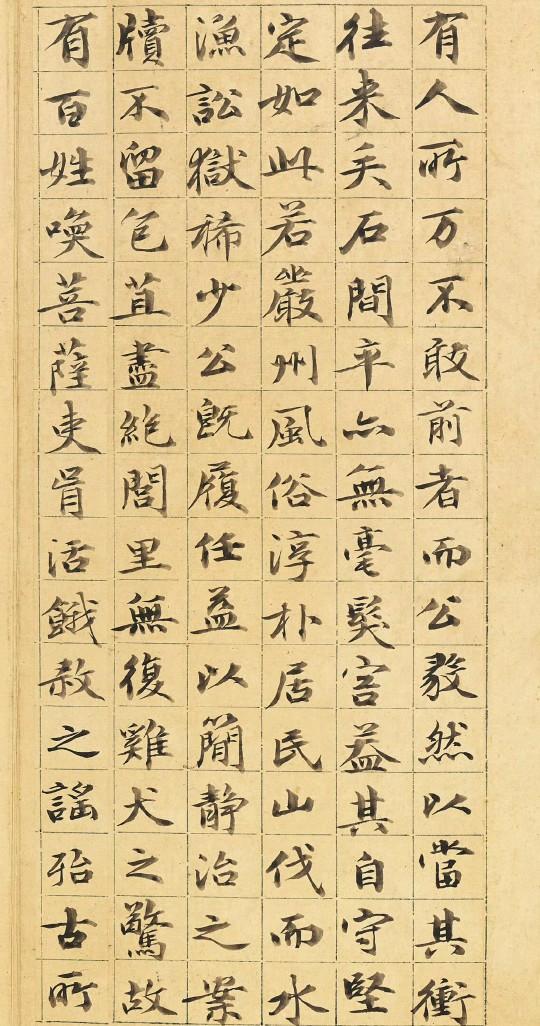 有人所万不敢前者而公毅然以當其衝
往来矢石間卒亦無毫髮害益其自守堅
定如此若嚴州風俗淳朴居民山伐而水
漁訟獄稀少公既履任益以簡静治之案
牘不留苞苴盡絶閭里無復雞犬之驚故
有百姓喚菩薩吏胥活餓殺之謡殆古所